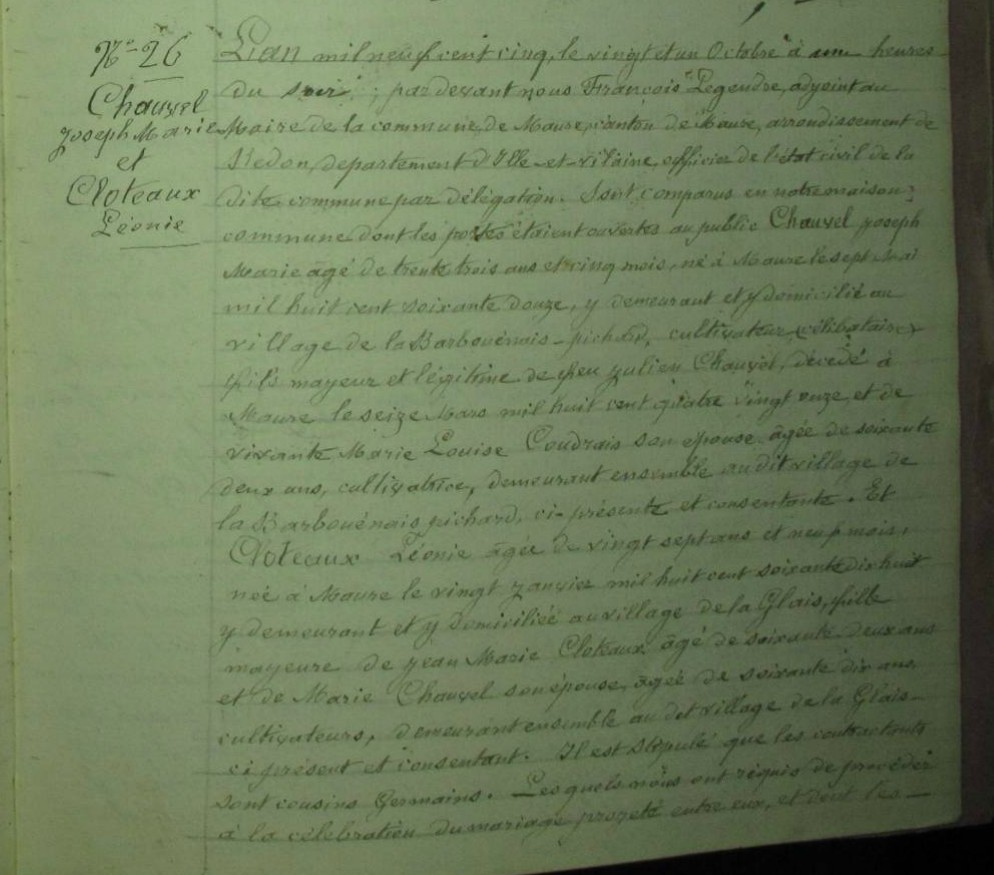 N° 26
Chauvel
Joseph Marie
et
Cloteaux
Léonie
L'an mil neuf cent cinq, le vingt et un Octobre à une heures
du soir ; par devant nous François Legendre, adjoint au
Maire de la commune de Maure, canton de Maure, arrondissement de
Redon, département d'Ille-et-vilaine, officier de l'état civil de la
dite commune par délégation. Sont comparus en notre maison
commune dont les portes étaient ouvertes au public Chauvel Joseph
Marie âgé de trente trois ans et cinq mois, né à Maure le sept Mai
mil huit cent soixante douze, y demeurant et y domicilié au
village de la Barbouénais-pichard, cultivateur (célibataire)
fils mayeur et légitime de feu Julien Chauvel, décédé à
Maure le seize Mars mil huit cent quatre vingt onze, et de
vivante Marie Louise Coudrais son épouse âgée de soixante
deux ans, cultivatrice, demeurant ensemble au dit village de
la Barbouénais pichard, ci-présente et consentante. Et
Cloteaux Léonie âgée de vingt sept ans et neuf mois,
née à Maure le vingt Janvier mil huit cent soixante dix huit
y demeurant et y domiciliée au village de la Glais, fille
mayeure de Jean Marie Cloteaux âgé de soixante deux ans
et de Marie Chauvel son épouse, âgée de soixante dix ans
cultivateurs, demeurant ensemble au dit village de la Glais-
ci présent et consentant. Il est stipulé que les contractants
sont cousins Germains. Lesquels nous ont requis de procéder
à la célébration du mariage projeté entre eux, et dont les —